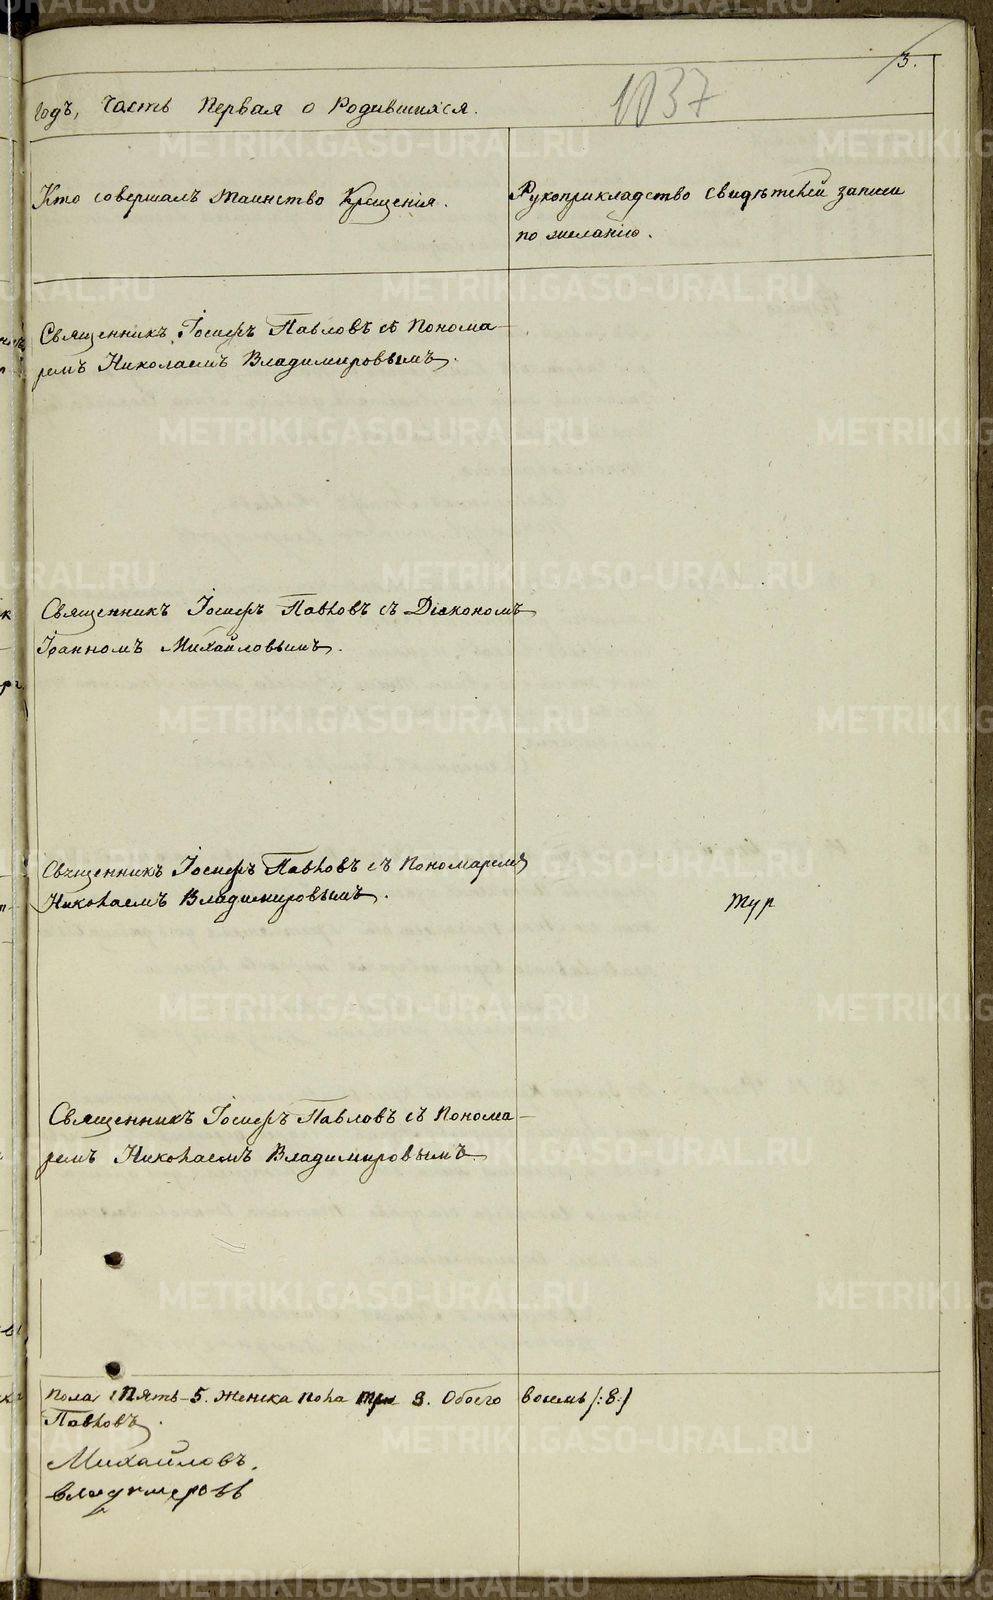 3.
1037
годъ, Часть Первая о Родившихся.
Кто совершалъ Таинство Крещенія.
Рукоприкладство свидѣтелей записи
по желанію.
Священникъ Іосифъ Павловъ съ Понома-
ремъ Николаемъ Владимировымъ.
Священникъ Іосифъ Павловъ съ Діакономъ
Іоанномъ Михайловымъ.
Священникъ Іосифъ Павловъ съ Пономаремъ
Николаемъ Владимировымъ.
Тур
Священникъ Іосифъ Павловъ съ Понома-
ремъ Николаемъ Владимировымъ.
Пола Пять 5. Женска Пола три 3. Обоего восемь /:8:/
Павловъ.
Михайловъ.
Владимеровъ
METRIKI.GASO-URAL.RU